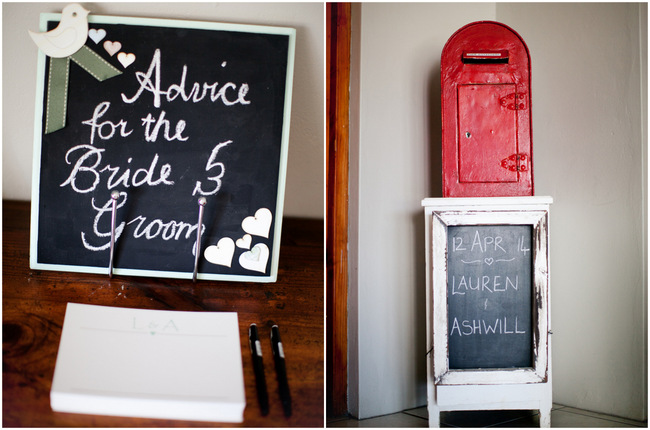 Advice
for the
Bride &
Groom
L & A
12 APR 14
LAUREN
&
ASHWILL